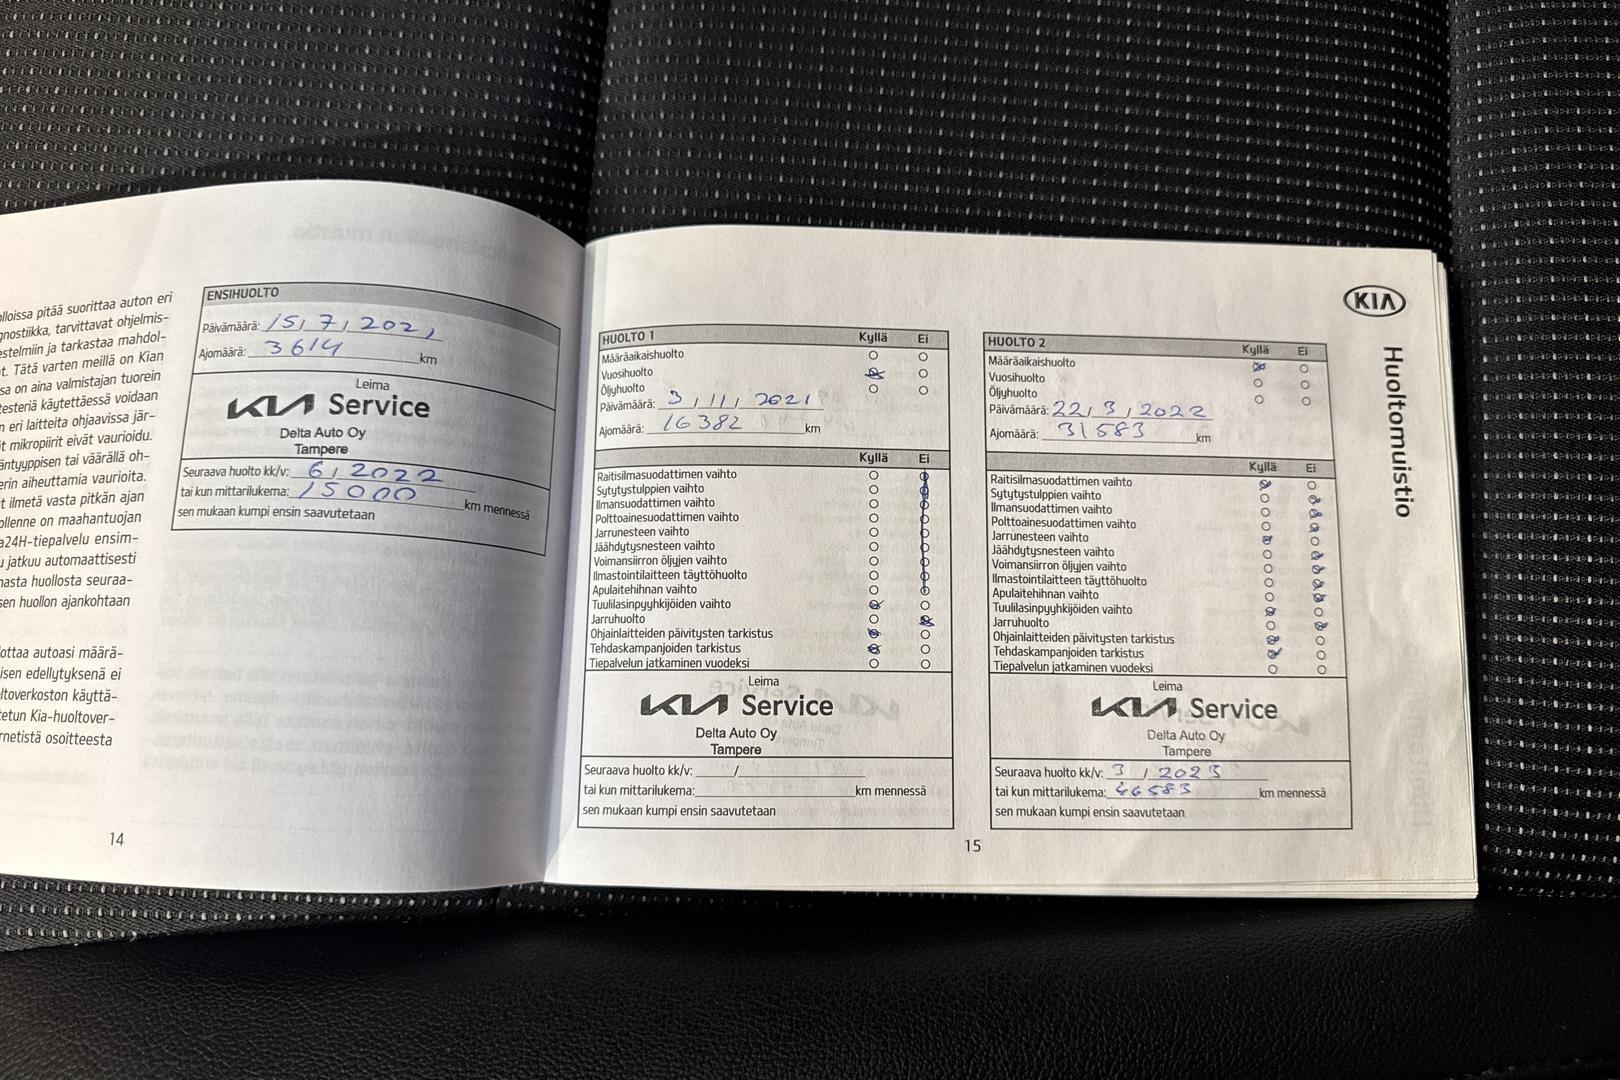 lloissa pitää suorittaa auton eri
gnostiikka, tarvittavat ohjelmis-
estelmiin ja tarkastaa mahdol-
t. Tätä varten meillä on Kian
sa on aina valmistajan tuorein
testeriä käytettäessä voidaan
n eri laitteita ohjaavissa jär-
it mikropiirit eivät vaurioidu.
äntyyppisen tai väärällä oh-
erin aiheuttamia vaurioita.
t ilmetä vasta pitkän ajan
ollenne on maahantuojan
a24H-tiepalvelu ensim-
u jatkuu automaattisesti
nasta huollosta seuraa-
sen huollon ajankohtaan
ottaa autoasi määrä-
isen edellytyksenä ei
ltoverkoston käyttä-
tetun Kia-huoltover-
rnetistä osoitteesta
14
ENSIHUOLTO
Päivämäärä: 15, 7, 2021
Ajomäärä: 3614 km
Leima
KIA Service
Delta Auto Oy
Tampere
Seuraava huolto kk/v: 6, 2022
tai kun mittarilukema: 15000 km mennessä
sen mukaan kumpi ensin saavutetaan
HUOLTO 1 Kyllä Ei
Määräaikaishuolto
Vuosihuolto
Öljyhuolto
Päivämäärä: 3, 11, 2021
Ajomäärä: 16382 km
Kyllä Ei
Raitisilmasuodattimen vaihto
Sytytystulppien vaihto
Ilmansuodattimen vaihto
Polttoainesuodattimen vaihto
Jarrunesteen vaihto
Jäähdytysnesteen vaihto
Voimansiirron öljyjen vaihto
Ilmastointilaitteen täyttöhuolto
Apulaitehihnan vaihto
Tuulilasinpyyhkijöiden vaihto
Jarruhuolto
Ohjainlaitteiden päivitysten tarkistus
Tehdaskampanjoiden tarkistus
Tiepalvelun jatkaminen vuodeksi
Leima
KIA Service
Delta Auto Oy
Tampere
Seuraava huolto kk/v: /
tai kun mittarilukema: km mennessä
sen mukaan kumpi ensin saavutetaan
HUOLTO 2 Kyllä Ei
Määräaikaishuolto
Vuosihuolto
Öljyhuolto
Päivämäärä: 22, 3, 2022
Ajomäärä: 31583 km
Kyllä Ei
Raitisilmasuodattimen vaihto
Sytytystulppien vaihto
Ilmansuodattimen vaihto
Polttoainesuodattimen vaihto
Jarrunesteen vaihto
Jäähdytysnesteen vaihto
Voimansiirron öljyjen vaihto
Ilmastointilaitteen täyttöhuolto
Apulaitehihnan vaihto
Tuulilasinpyyhkijöiden vaihto
Jarruhuolto
Ohjainlaitteiden päivitysten tarkistus
Tehdaskampanjoiden tarkistus
Tiepalvelun jatkaminen vuodeksi
Leima
KIA Service
Delta Auto Oy
Tampere
Seuraava huolto kk/v: 3, 2023
tai kun mittarilukema: 46583 km mennessä
sen mukaan kumpi ensin saavutetaan
15
KIA
Huoltomuistio